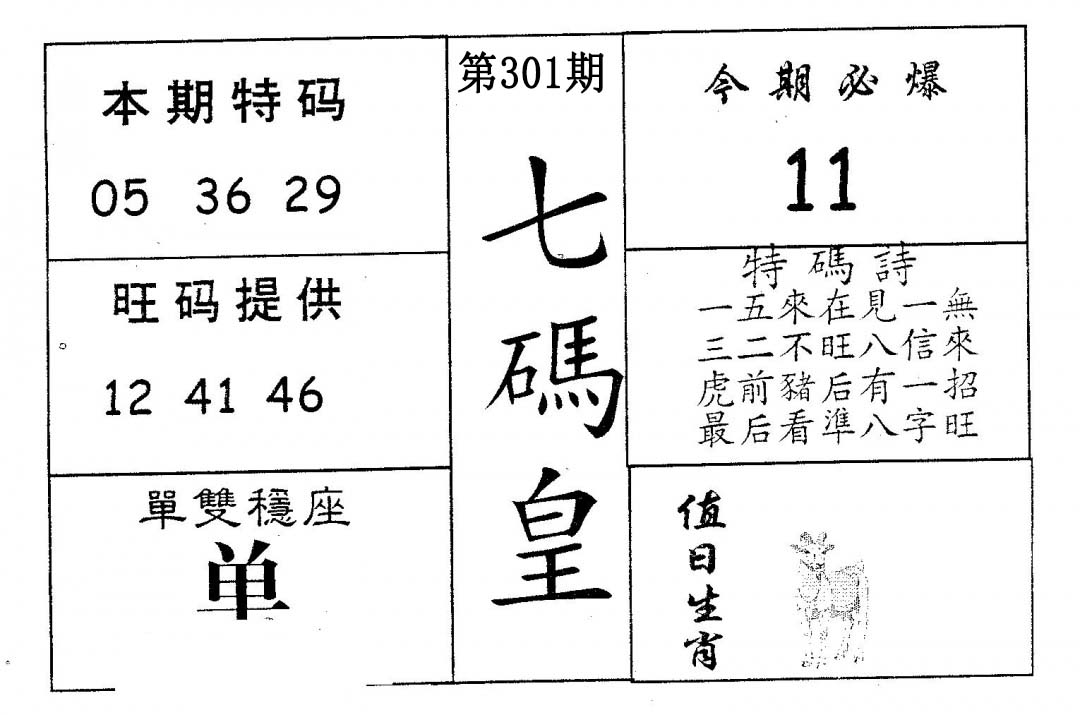 本期特码
05 36 29
旺码提供
12 41 46
單雙穩座
单
第301期
七碼皇
今期必爆
11
特碼詩
一五來在見一無
三二不旺八信來
虎前豬后有一招
最后看準八字旺
值日生肖